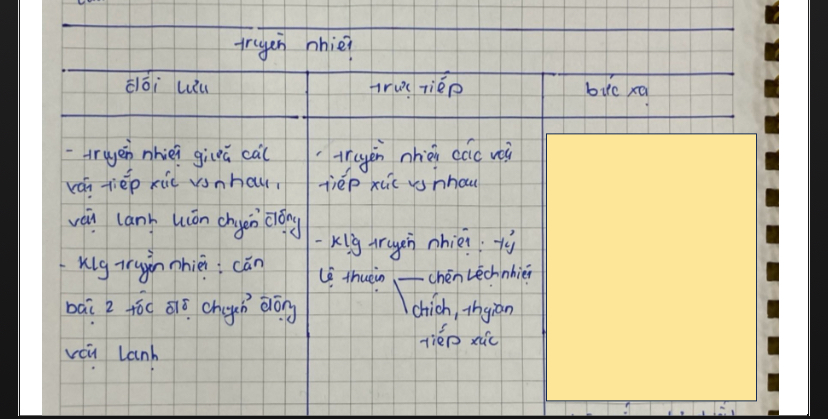 truyền nhiệt
đối lưu
trực tiếp
bức xạ
- truyền nhiệt giữa các
vật tiếp xúc vs nhau,
vật lạnh luôn chuyển động
- Klg truyền nhiệt : căn
bậc 2 tốc độ chuyển động
vật lạnh
- truyền nhiệt các vật
tiếp xúc vs nhau
- Klg truyền nhiệt : tỷ
lệ thuận — chênh lệch nhiệt
tiếp xúc